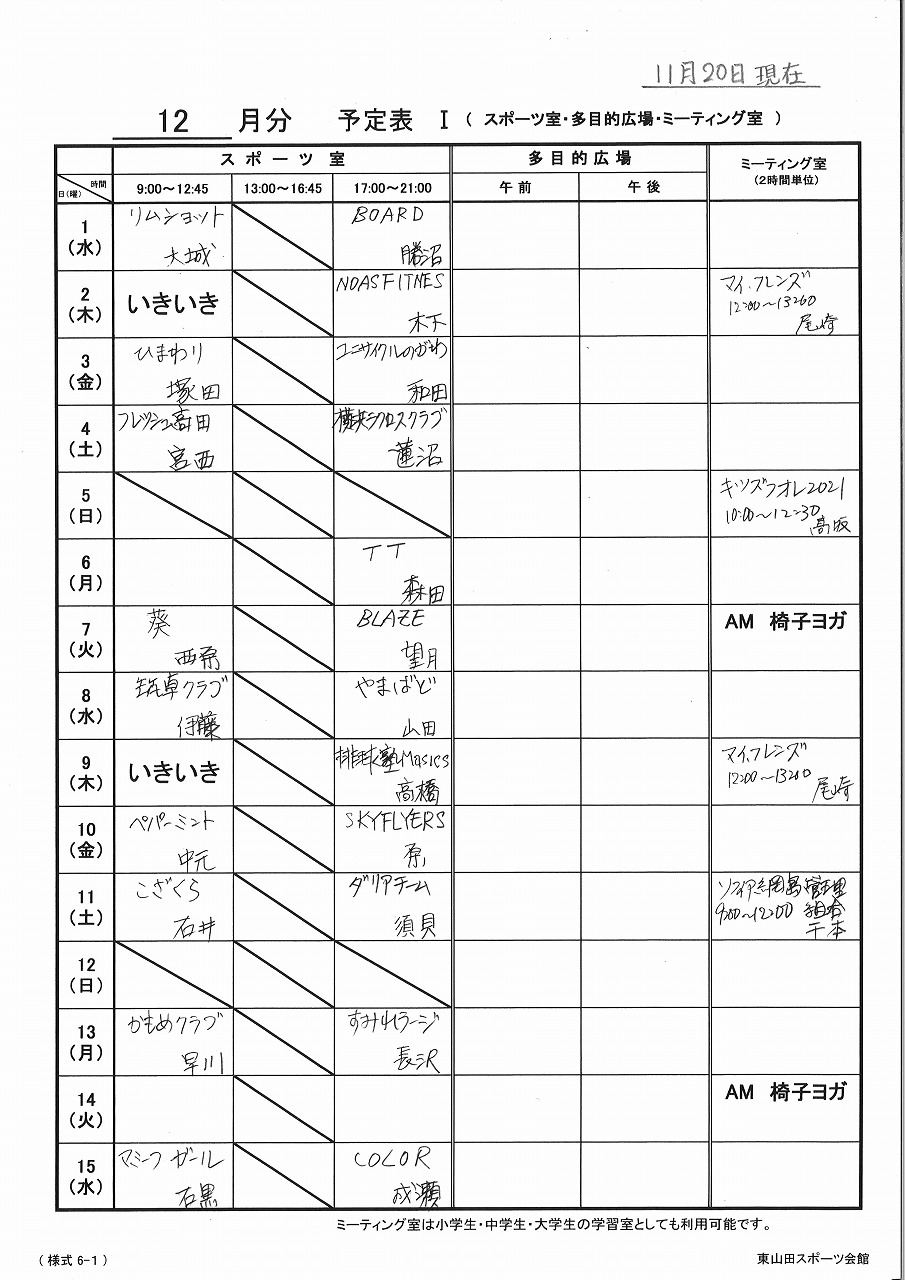 11月20日現在
12 月分 予定表 Ⅰ ( スポーツ室・多目的広場・ミーティング室 )
スポーツ室 多目的広場 ミーティング室
(2時間単位)
時間
日(曜)
9:00～12:45 13:00～16:45 17:00～21:00 午前 午後
1
(水)
リムショット
大城
BOARD
勝沼
2
(木)
いきいき
NOASFITNES
木下
マイ.フレンズ
12:00～13:00
尾崎
3
(金)
ひまわり
塚田
ユニサイクルのがわ
和田
4
(土)
フレッシュ高田
宮西
横浜ラクロスクラブ
蓮沼
5
(日)
キッズフオレ2021
10:00～12:30
高坂
6
(月)
TT
森田
7
(火)
葵
西原
BLAZE
望月
AM 椅子ヨガ
8
(水)
筑卓クラブ
伊藤
やまばど
山田
9
(木)
いきいき
排球塾Masics
高橋
マイ.フレンズ
12:00～13:00
尾崎
10
(金)
ペパーミント
中元
SKYFLYERS
原
11
(土)
こざくら
石井
ダリアチーム
須貝
ソフィア綱島管理
9:00～12:00 組合
千本
12
(日)
13
(月)
かもめクラブ
早川
すみれラージ
長沢
14
(火)
AM 椅子ヨガ
15
(水)
マミーフ ガール
石黒
COLOR
成瀬
ミーティング室は小学生・中学生・大学生の学習室としても利用可能です。
( 様式 6-1 )
東山田スポーツ会館